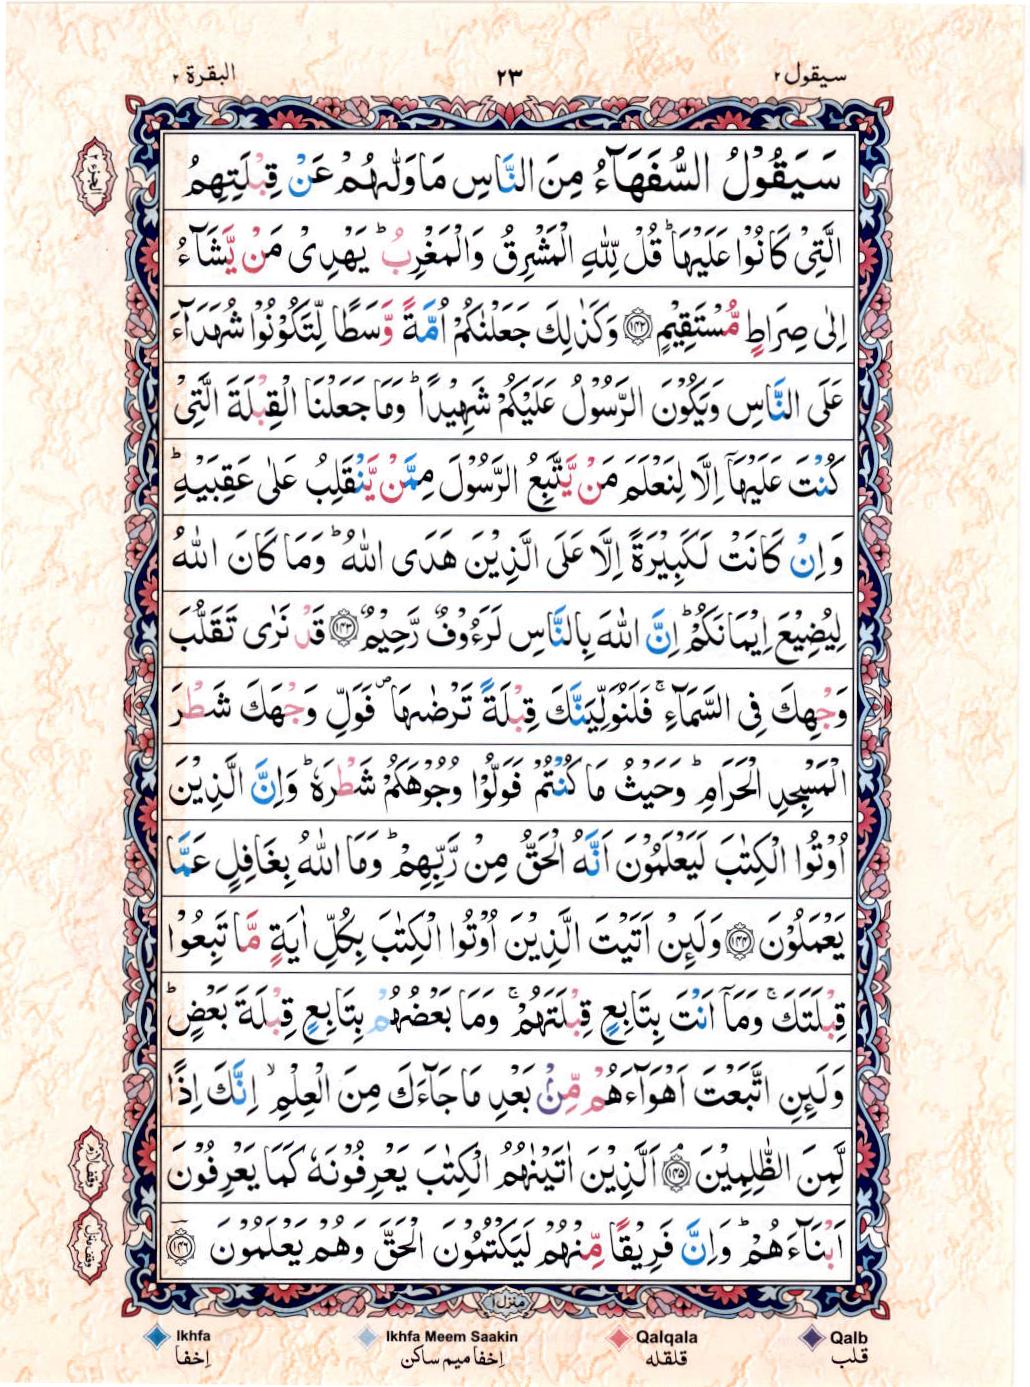 سيقول ٢
٢٣
البقرة ٢
الجزء ٢
سَيَقُوۡلُ السُّفَهَآءُ مِنَ النَّاسِ مَا وَلّٰٮهُمۡ عَنۡ قِبۡلَتِهِمُ
الَّتِىۡ كَانُوۡا عَلَيۡهَا ؕ قُلۡ لِّلّٰهِ الۡمَشۡرِقُ وَالۡمَغۡرِبُ ؕ يَهۡدِىۡ مَنۡ يَّشَآءُ
اِلٰى صِرَاطٍ مُّسۡتَقِيۡمٍ ﴿۱۴۲﴾ وَكَذٰلِكَ جَعَلۡنٰكُمۡ اُمَّةً وَّسَطًا لِّتَکُوۡنُوۡا شُهَدَآءَ
عَلَى النَّاسِ وَيَكُوۡنَ الرَّسُوۡلُ عَلَيۡكُمۡ شَهِيۡدًا ؕ وَمَا جَعَلۡنَا الۡقِبۡلَةَ الَّتِىۡ
كُنۡتَ عَلَيۡهَآ اِلَّا لِنَعۡلَمَ مَنۡ يَّتَّبِعُ الرَّسُوۡلَ مِمَّنۡ يَّنۡقَلِبُ عَلٰى عَقِبَيۡهِ ؕ
وَاِنۡ كَانَتۡ لَكَبِيۡرَةً اِلَّا عَلَى الَّذِيۡنَ هَدَى اللّٰهُ ؕ وَمَا كَانَ اللّٰهُ
لِيُضِيْعَ اِيۡمَانَكُمۡ ؕ اِنَّ اللّٰهَ بِالنَّاسِ لَرَءُوۡفٌ رَّحِيۡمٌ ﴿۱۴۳﴾ قَدۡ نَرٰى تَقَلُّبَ
وَجۡهِكَ فِى السَّمَآءِ ۚ فَلَنُوَلِّيَنَّكَ قِبۡلَةً تَرۡضٰٮهَا ۖ فَوَلِّ وَجۡهَكَ شَطۡرَ
الۡمَسۡجِدِ الۡحَرَامِ ؕ وَحَيۡثُ مَا كُنۡتُمۡ فَوَلُّوۡا وُجُوۡهَكُمۡ شَطۡرَهٗ ؕ وَاِنَّ الَّذِيۡنَ
اُوۡتُوا الۡكِتٰبَ لَيَعۡلَمُوۡنَ اَنَّهُ الۡحَقُّ مِنۡ رَّبِّهِمۡ ؕ وَمَا اللّٰهُ بِغَافِلٍ عَمَّا
يَعۡمَلُوۡنَ ﴿۱۴۴﴾ وَلَٮِٕنۡ اَتَيۡتَ الَّذِيۡنَ اُوۡتُوا الۡكِتٰبَ بِكُلِّ اٰيَةٍ مَّا تَبِعُوۡا
قِبۡلَتَكَ ۚ وَمَآ اَنۡتَ بِتَابِعٍ قِبۡلَتَهُمۡ ۚ وَمَا بَعۡضُهُمۡ بِتَابِعٍ قِبۡلَةَ بَعۡضٍ ؕ
وَلَٮِٕنِ اتَّبَعۡتَ اَهۡوَآءَهُمۡ مِّنۡۢ بَعۡدِ مَا جَآءَكَ مِنَ الۡعِلۡمِ ۙ اِنَّكَ اِذًا
لَّمِنَ الظّٰلِمِيۡنَ ﴿۱۴۵﴾ اَلَّذِيۡنَ اٰتَيۡنٰهُمُ الۡكِتٰبَ يَعۡرِفُوۡنَهٗ كَمَا يَعۡرِفُوۡنَ
اَبۡنَآءَهُمۡ ؕ وَاِنَّ فَرِيۡقًا مِّنۡهُمۡ لَيَكۡتُمُوۡنَ الۡحَقَّ وَهُمۡ يَعۡلَمُوۡنَ ﴿۱۴۶﴾
وقف لازم
وقف منزل
منزل ١
Ikhfa
Ikhfa Meem Saakin
Qalqala
Qalb
إخفا
إخفا ميم ساكن
قلقله
قلب